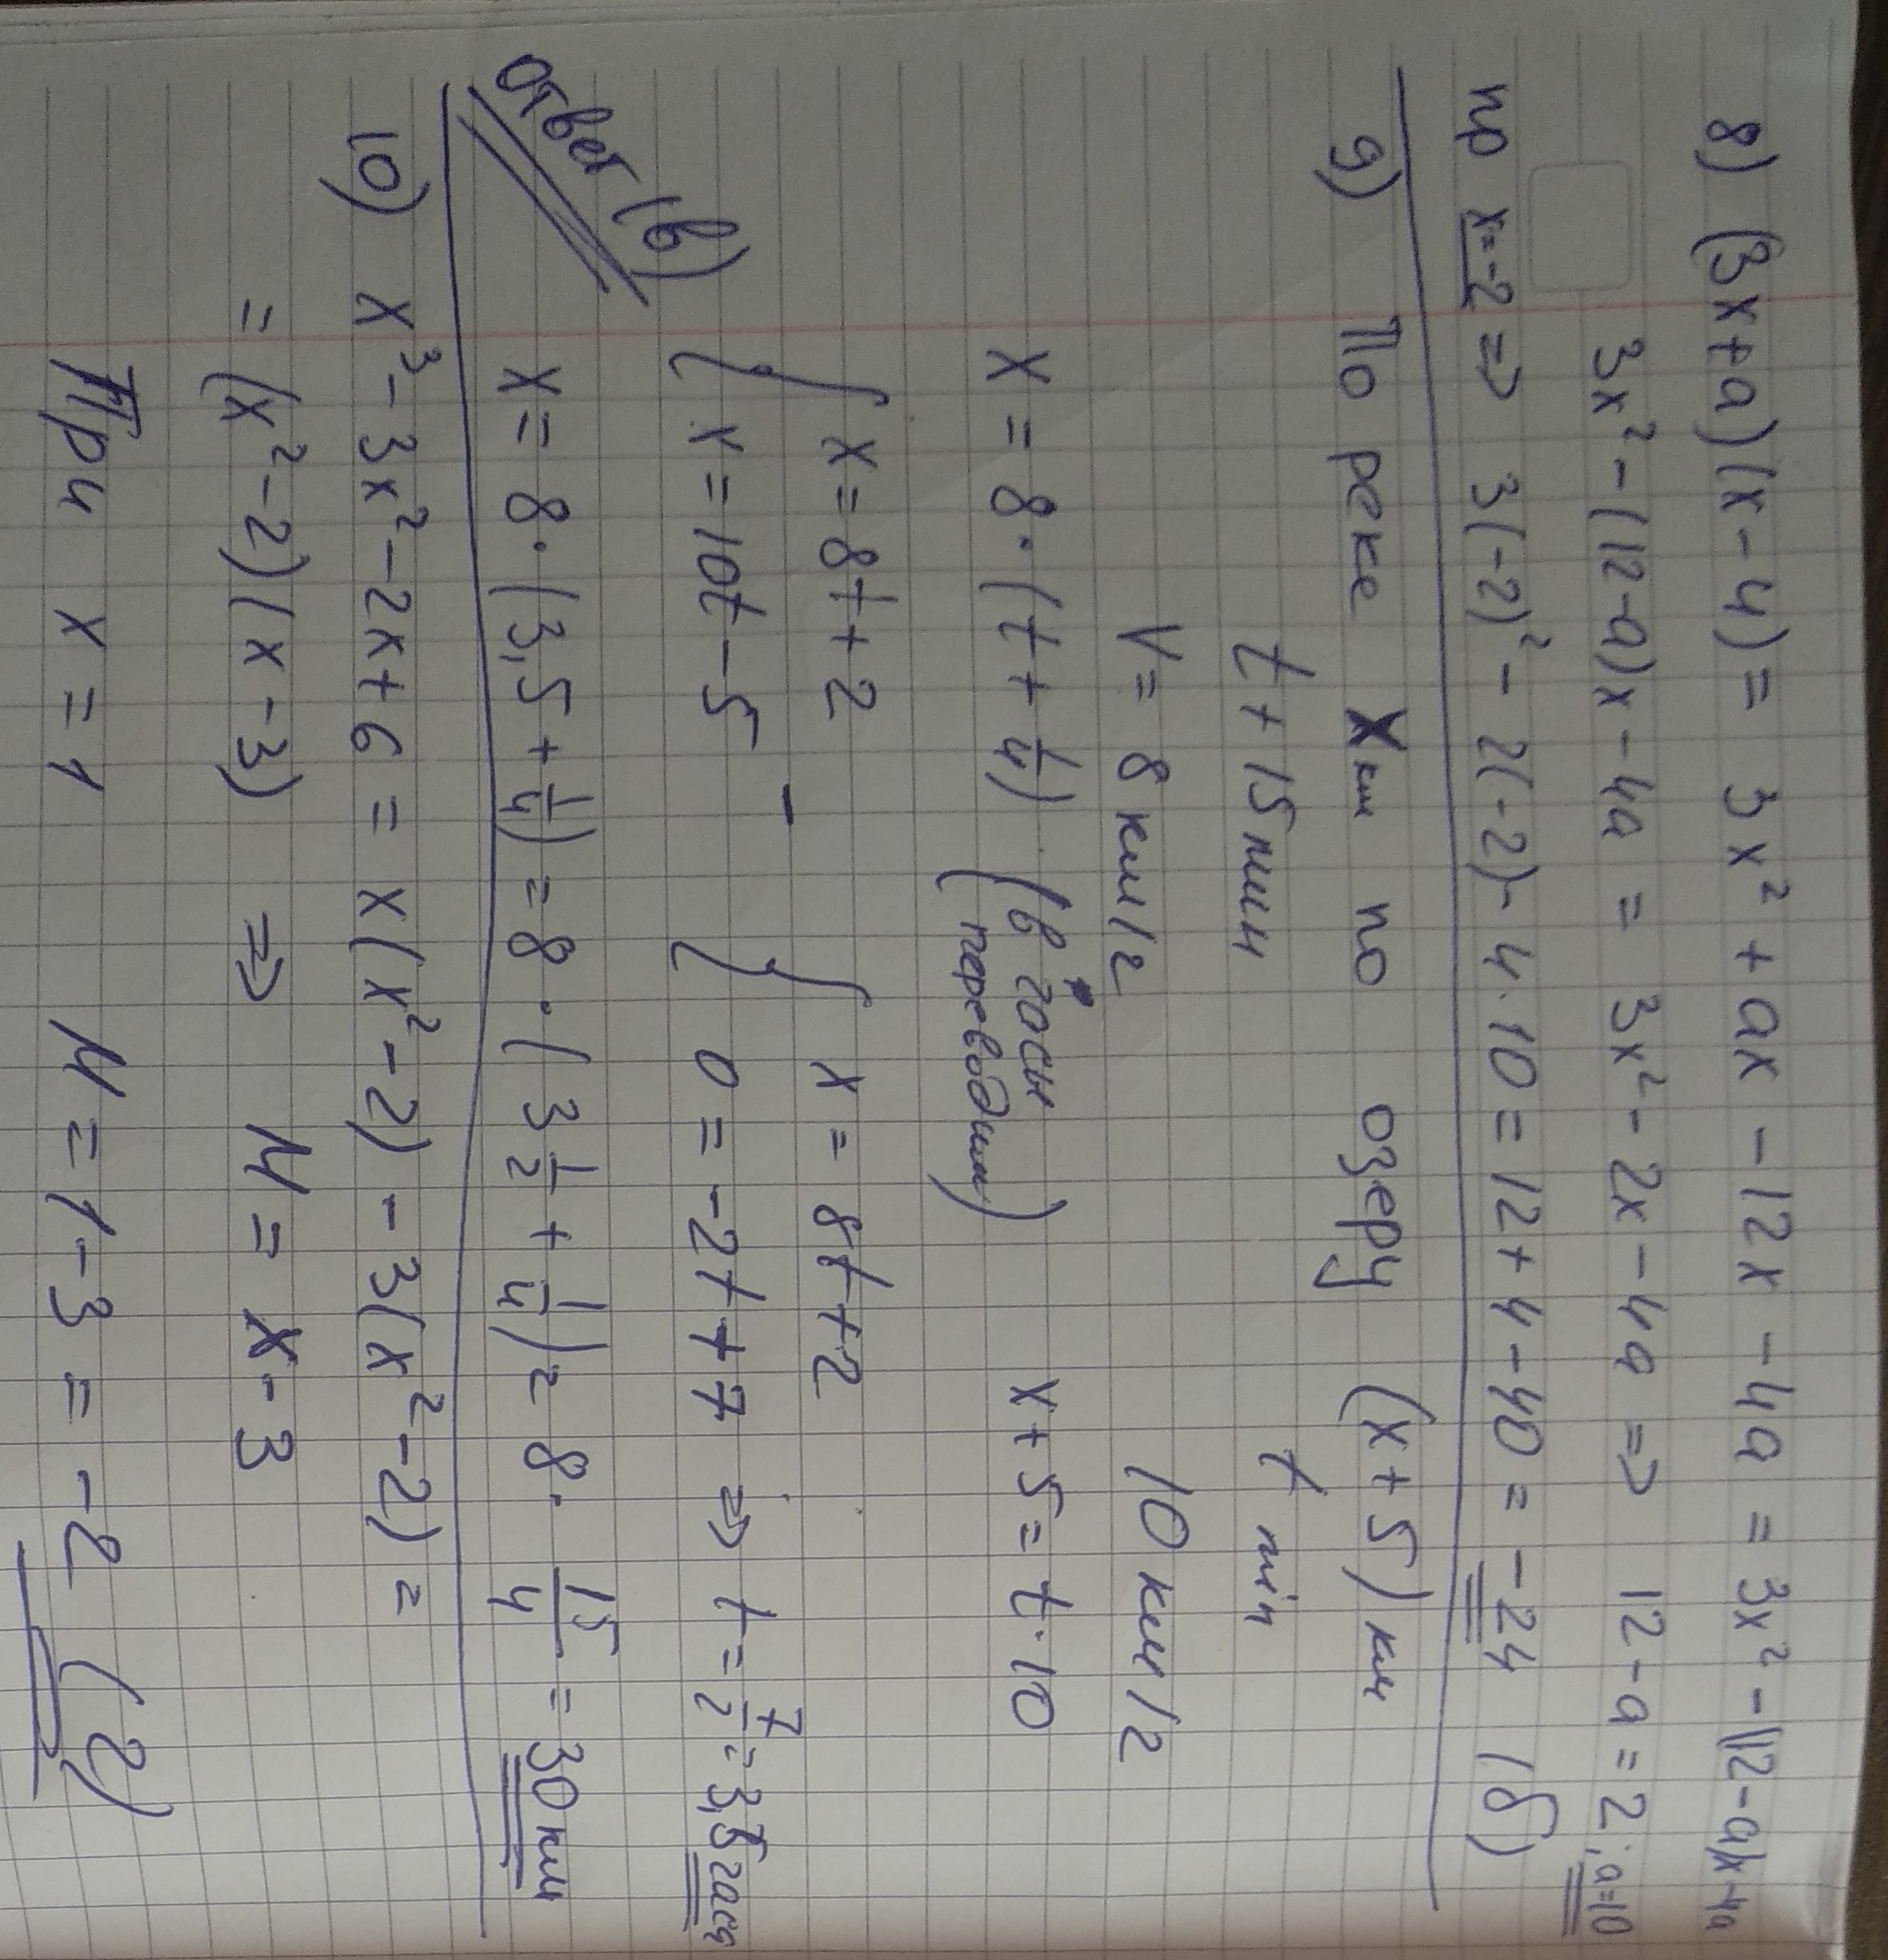 8) (3x+a)(x-4) = 3x² + ax - 12x - 4a = 3x² - (12-a)x-4a
3x² - (12-a)x - 4a = 3x² - 2x - 4a ⇒ 12-a=2; a=10
пр x=-2 ⇒ 3(-2)² - 2(-2) - 4·10 = 12+4-40 = -24 (б)
9) По реке Xкм по озеру (x+5) км
t+15мин t min
V = 8 км/г 10 км/г
X = 8·(t+1/4) (в часы x+5=t·10
переводим)
{ x=8t+2 { x=8t+2
{ x=10t-5 { 0=-2t+7 ⇒ t=7/2=3,5часа
Ответ (в)
X=8·(3,5+1/4)=8·(3 1/2+1/4)=8·15/4=30км
10) X³-3x²-2x+6=x(x²-2)-3(x²-2)=
=(x²-2)(x-3) ⇒ M=x-3
При x=1 M=1-3=-2 (г)